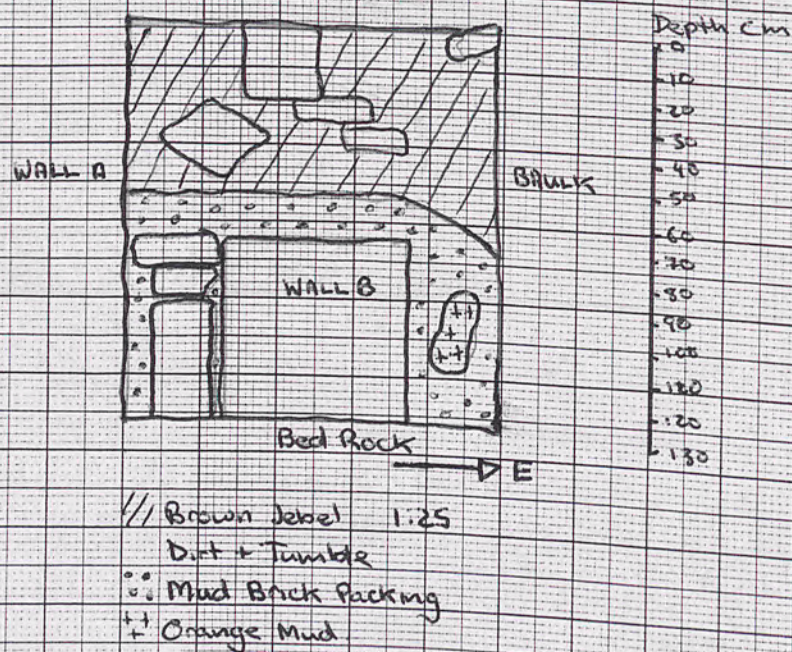 Depth cm
0
10
20
30
40
50
60
70
80
90
100
120
130
WALL A
BAULK
WALL B
Bed Rock
E
Brown Jebel 1:25
Dirt + Tumble
Mud Brick Packing
Orange Mud